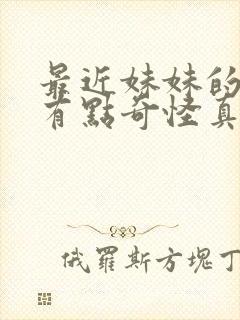 最近妹妹的
有點奇怪真
俄羅斯方塊丁